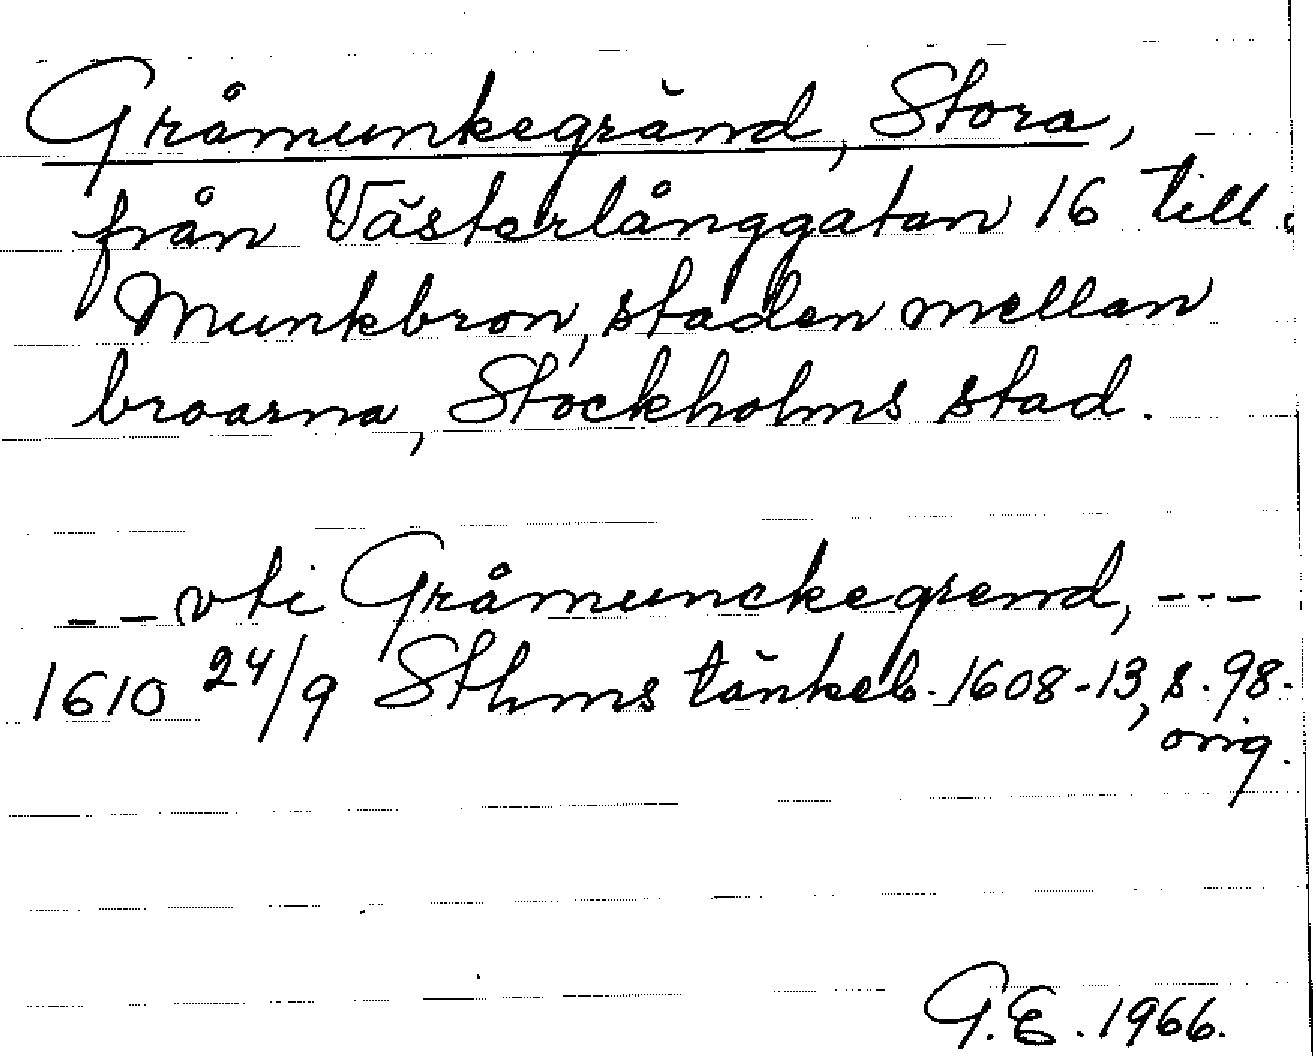 Gråmunkegränd, Stora,
från Västerlånggatan 16 till
Munkbron, staden mellan
broarna, Stockholms stad.
_ _ vti Gråmunckegrend, ---
1610 24/9 Sthms tänkeb. 1608-13, s. 98.
orig.
G.E. 1966.